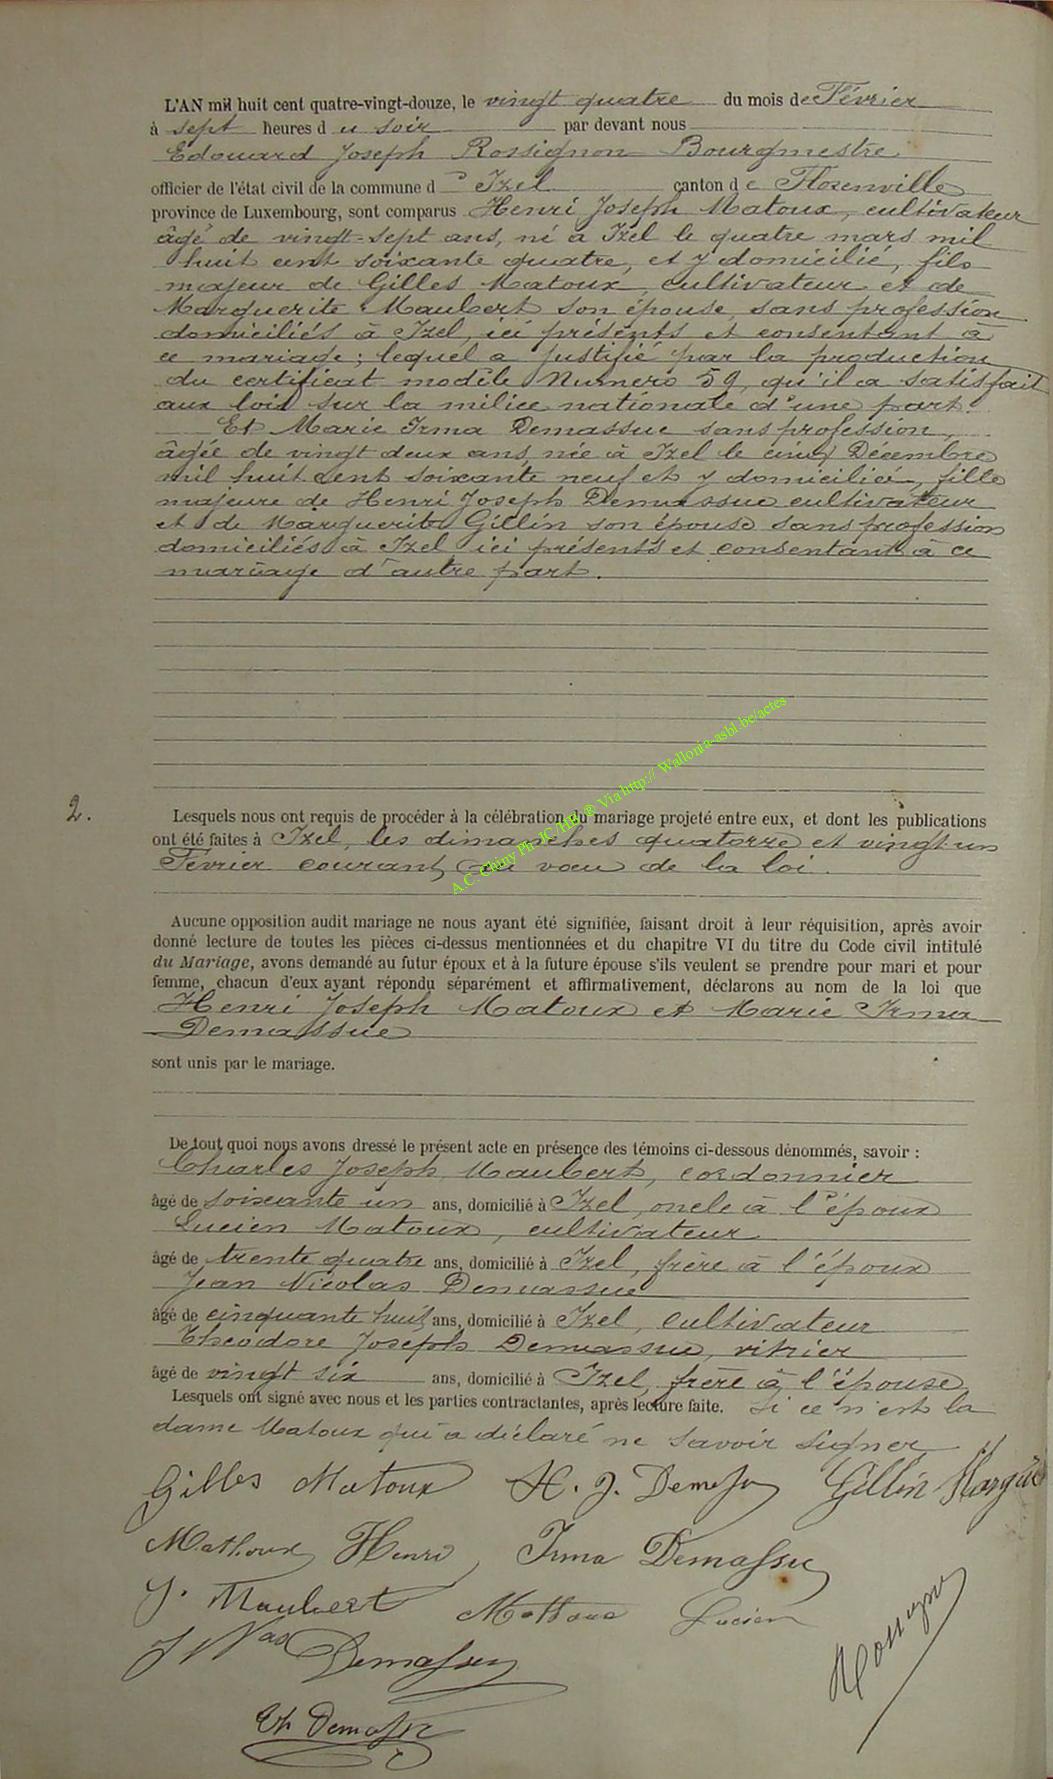 L'AN mil huit cent quatre-vingt-douze, le vingt quatre du mois de Février
à sept heures du soir par devant nous
Edouard Joseph Rossignon Bourgmestre
officier de l'état civil de la commune d'Izel canton de Florenville
province de Luxembourg, sont comparus Henri Joseph Matoux, cultivateur
âgé de vingt-sept ans, né à Izel le quatre mars mil
huit cent soixante quatre, et y domicilié, fils
majeur de Gilles Matoux, cultivateur et de
Marguerite Maubert son épouse, sans profession
domiciliés à Izel, ici présents et consentant à
ce mariage; lequel a justifié par la production
du certificat modèle Numero 59, qu'il a satisfait
aux lois sur la milice nationale d'une part.
Et Marie Irma Demassue sans profession,
âgée de vingt deux ans née à Izel le cinq Décembre
mil huit cent soixante neuf et y domiciliée, fille
majeure de Henri Joseph Demassue cultivateur
et de Marguerite Gillin son épouse sans profession
domiciliés à Izel ici présents et consentant à ce
mariage d'autre part.
2.
Lesquels nous ont requis de procéder à la célébration du mariage projeté entre eux, et dont les publications
ont été faites à Izel, les dimanches quatorze et vingt-un
Février courant, au vœu de la loi.
A.C. Chiny Ph. JC/HB ® Via http:// Wallonia-asbl.be/actes
Aucune opposition audit mariage ne nous ayant été signifiée, faisant droit à leur réquisition, après avoir
donné lecture de toutes les pièces ci-dessus mentionnées et du chapitre VI du titre du Code civil intitulé
du Mariage, avons demandé au futur époux et à la future épouse s'ils veulent se prendre pour mari et pour
femme, chacun d'eux ayant répondu séparément et affirmativement, déclarons au nom de la loi que
Henri Joseph Matoux et Marie Irma
Demassue
sont unis par le mariage.
De tout quoi nous avons dressé le présent acte en présence des témoins ci-dessous dénommés, savoir :
Charles Joseph Maubert, cordonnier
âgé de soixante un ans, domicilié à Izel, oncle à l'époux
Lucien Matoux, cultivateur
âgé de trente quatre ans, domicilié à Izel, frère à l'époux
Jean Nicolas Demassue
âgé de cinquante huit ans, domicilié à Izel, cultivateur
Théodore Joseph Demassue, vitrier
âgé de vingt six ans, domicilié à Izel, frère à l'épouse
Lesquels ont signé avec nous et les parties contractantes, après lecture faite. Si ce n'est la
dame Matoux qui a déclaré ne savoir signer
Gilles Matoux H. J. Demassu Gillin Margue
Mathoux Henri, Irma Demassue
J. Maubert Mathoux Lucien
J Nas Demassue
Rossignon
Th Demassue